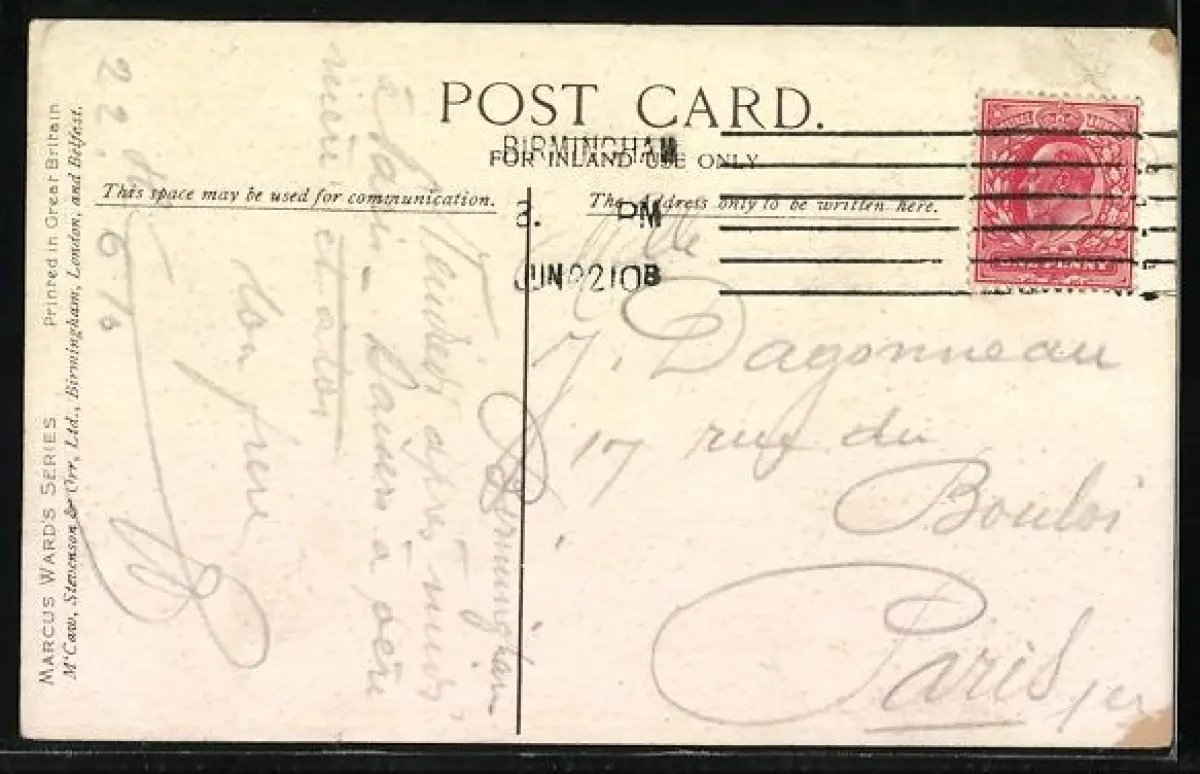 POST CARD.
FOR INLAND USE ONLY
This space may be used for communication.
The Address only to be written here.
BIRMINGHAM
PM
JUN 22 10 B
ONE PENNY
Mlle
J. Dagonneau
17 rue du
Bouloi
Paris 1er
Birmingham
Vendredi après midi,
à Paris. Baisers à père
mère et a toi
Ton frère
22. 6 10
MARCUS WARD'S SERIES Printed in Great Britain
McCaw, Stevenson & Orr, Ltd., Birmingham, London, and Belfast.